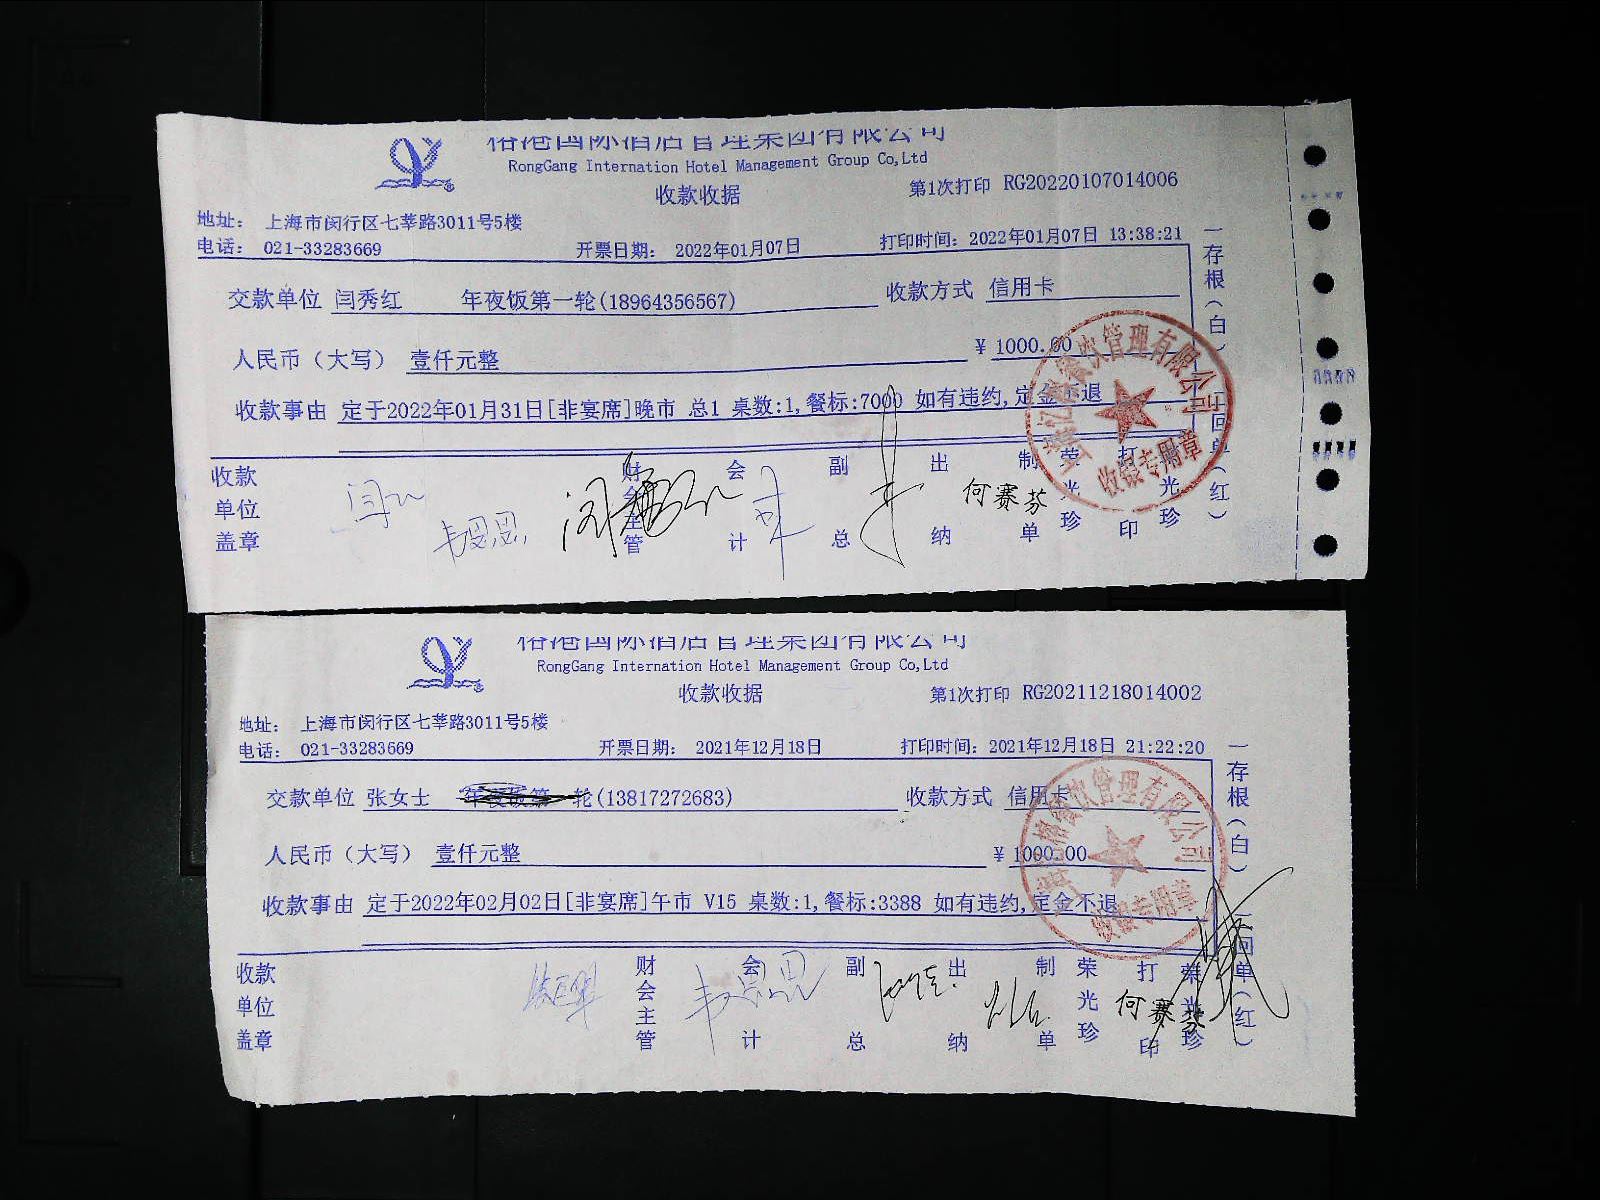 榕港国际酒店管理集团有限公司
RongGang Internation Hotel Management Group Co,Ltd
收款收据
第1次打印 RG20220107014006
地址： 上海市闵行区七莘路3011号5楼
电话： 021-33283669 开票日期： 2022年01月07日 打印时间：2022年01月07日 13:38:21
交款单位 闫秀红 年夜饭第一轮(18964356567) 收款方式 信用卡
人民币（大写） 壹仟元整 ¥ 1000.00
收款事由 定于2022年01月31日[非宴席]晚市 总1 桌数:1,餐标:7000 如有违约,定金不退
收款单位盖章 财会主管 会计 副总 出纳 何赛芬 制单 荣光珍 打印 荣光珍
一存根（白） 二回单（红）
餐饮管理有限公司
收银专用章
榕港国际酒店管理集团有限公司
RongGang Internation Hotel Management Group Co,Ltd
收款收据
第1次打印 RG20211218014002
地址： 上海市闵行区七莘路3011号5楼
电话： 021-33283669 开票日期： 2021年12月18日 打印时间：2021年12月18日 21:22:20
交款单位 张女士 年夜饭第一轮(13817272683) 收款方式 信用卡
人民币（大写） 壹仟元整 ¥ 1000.00
收款事由 定于2022年02月02日[非宴席]午市 V15 桌数:1,餐标:3388 如有违约,定金不退
收款单位盖章 财会主管 会计 副总 出纳 制单 荣光珍 何赛芬 打印 荣光珍
一存根（白） 二回单（红）
餐饮管理有限公司
收银专用章